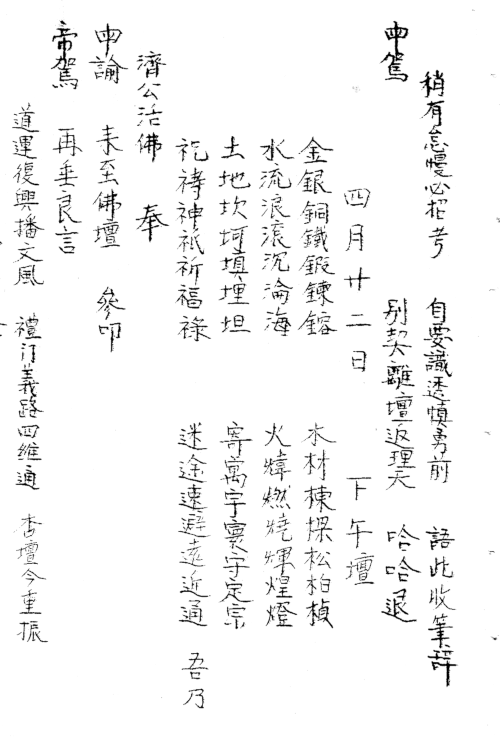 稍有怠慢必招考　自要識透慎勇前　語此收筆辭
申駕　别契離壇返理天　哈哈退
四月廿二日　下午壇
金銀銅鐵鍛鍊鎔　木材棟樑松柏楨
水流浪滾沉淪海　火煒燃燒輝煌燈
土地坎坷填埋坦　寄寓宇寰守定宗
祀禱神祇祈福祿　迷途速避遠近通　吾乃
濟公活佛　奉
申諭　未至佛壇　參叩
帝駕　再垂良言
道運復興播文風　禮門義路四維通　杏壇今重振